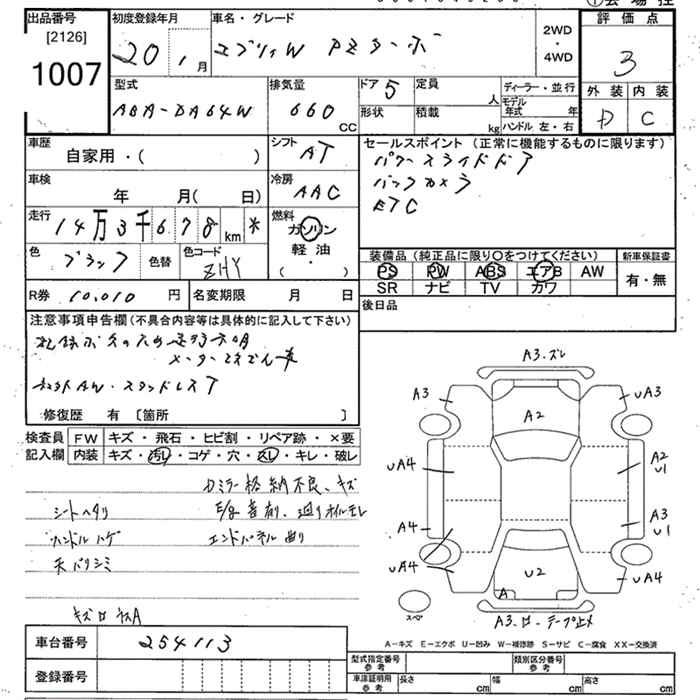 出品番号
[2126]
1007
初度登録年月
20年1月
車名・グレード
エブリィW PZターボ
2WD
・
4WD
評価点
3
外装 内装
D C
型式
ABA-DA64W
排気量
660
CC
ドア 5
定員
人
形状
積載
kg
ディーラー・並行
モデル年式 年
ハンドル 左・右
車歴
自家用・( )
シフト
AT
セールスポイント (正常に機能するものに限ります)
パワースライドドア
バックカメラ
ETC
車検
年 月( 日)
冷房
AAC
走行
14万3千678km *
燃料
ガソリン
軽油
( ・ )
色
ブラック
色替
色コード
ZHY
装備品 (純正品に限り○をつけてください)
PS PW ABS エアB AW
SR ナビ TV カワ
新車保証書
有・無
R券 10,010 円
名変期限 月 日
後日品
注意事項申告欄 (不具合内容等は具体的に記入して下さい)
AW・スタッドレスT
修復歴 有 [箇所 ]
検査員記入欄
FW キズ・飛石・ヒビ割・リペア跡・×要
内装 キズ・汚レ・コゲ・穴・スレ・キレ・破レ
カミラー格納不良、キズ
シートヘタリ
ハンドルハゲ
エンドパネル曲り
A3.ズレ
A3
UA3
A2
UA4
A2
U1
A4
A3
U1
UA4
U2
A
UA4
スペア
A3.ワレ テープ止メ
車台番号 254113
登録番号
A-キズ E-エクボ U-凹み W-補修跡 S-サビ C-腐食 XX-交換済
型式指定番号参考
類別区分番号参考
車庫証明用参考
長さ cm
幅 cm
高さ cm